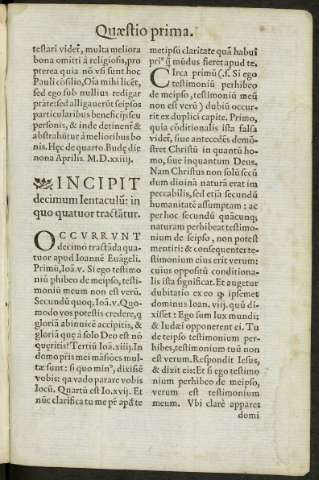 Quæstio prima.
testari videt', multa meliora
bona omitti á religiosis, pro
pterea quia nō vsi sunt hoc
Pauli cōsilio, Oīa mihi licēt,
sed ego sub nullius redigar
ptāte: sed alligauerūt seipsos
particularibus beneficijs seu
personis, & inde detinent' &
abstrahūtur á melioribus bo
nis. Hęc de quarto. Budę die
nona Aprilis. M.D.xxiiij.
INCIPIT
decimum Ientaculū: in
quo quatuor tractātur.
OCCVRRVNT
decimo tractāda qua
tuor apud Ioannē Euāgeli.
Primū, Ioā. v. Si ego testimo
niū phibeo de meipso, testi-
moniū meum non est verū.
Secundū quoq; Ioā. v. Quo-
modo vos potestis credere, q
gloriā abinuicē accipitis, &
gloriā quę á solo Deo est nō
quęritis? Tertiū Ioā. xiiij. In
domo pris mei māsiões mul-
tæ sunt: si quo min', dixissē
vobis: qa vado parare vobis
locū. Quartū est Io. xvij. Et
nūc clarifica tu me pr̄ apd' te
metipsū claritate quā habui
pri' q̄ mūdus fieret apud te.
Circa primū (.s. Si ego
testimoniū perhibeo
de meipso, testimoniū meū
non est verū) dubiū occur-
rit ex duplici capite. Primo,
quia cōditionalis ista falsa
videt', siue antecedēs demō-
stret Christū in quantū ho-
mo, siue inquantum Deus.
Nam Christus non solū secū
dum diuinā naturā erat im-
peccabilis, sed etiā secundū
humanitatē assumptam : ac
per hoc secundū quācunq;
naturam perhibeat testimo-
nium de seipso, non potest
mentiri: & consequenter te-
stimonium eius erit verum:
cuius oppositū conditiona-
lis ista significat. Et augetur
dubitatio ex eo q ipsemet
dominus Ioan. viij. quū di-
xisset : Ego sum lux mundi;
& Iudæi opponerent ei. Tu
de teipso testimonium per-
hibes, testimonium tuū non
est verum. Respondit Iesus,
& dixit eis: Et si ego testimo
nium perhibeo de meipso,
verum est testimonium
meum. Vbi clarè appares
domi